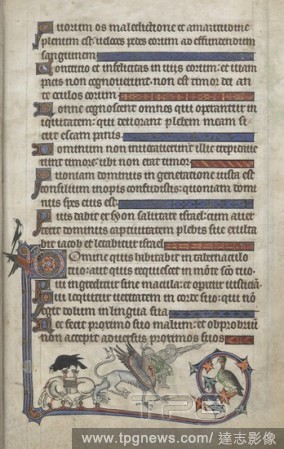 Quorum os maledictione et amaritudine
plenum est: veloces pedes eorum ad effundendum
sanguinem
Contricio et infelicitas in viis eorum: et viam
pacis non cognoverunt: non est timor dei an
te oculos eorum
Nonne cognoscent omnes qui operantur in
iquitatem: qui devorant plebem meam si
cut escam panis
Dominum non invocaverunt illic trepidave
runt timore: ubi non erat timor
Quoniam dominus in generatione iusta est
consilium inopis confudistis: quoniam domi
nus spes eius est
Quis dabit ex syon salutare israel: cum aver
terit dominus captivitatem plebis sue exulta
bit iacob et letabitur israel
Domine quis habitabit in tabernaculo
tuo: aut quis requiescet in monte sancto tuo
Qui ingreditur sine macula: et operatur iusticiam
Qui loquitur veritatem in corde suo: qui non
egit dolum in lingua sua
Nec fecit proximo suo malum: et obprobrium
non accepit adversus proximos suos
TPG
www.tpgnews.com/ 達志影像